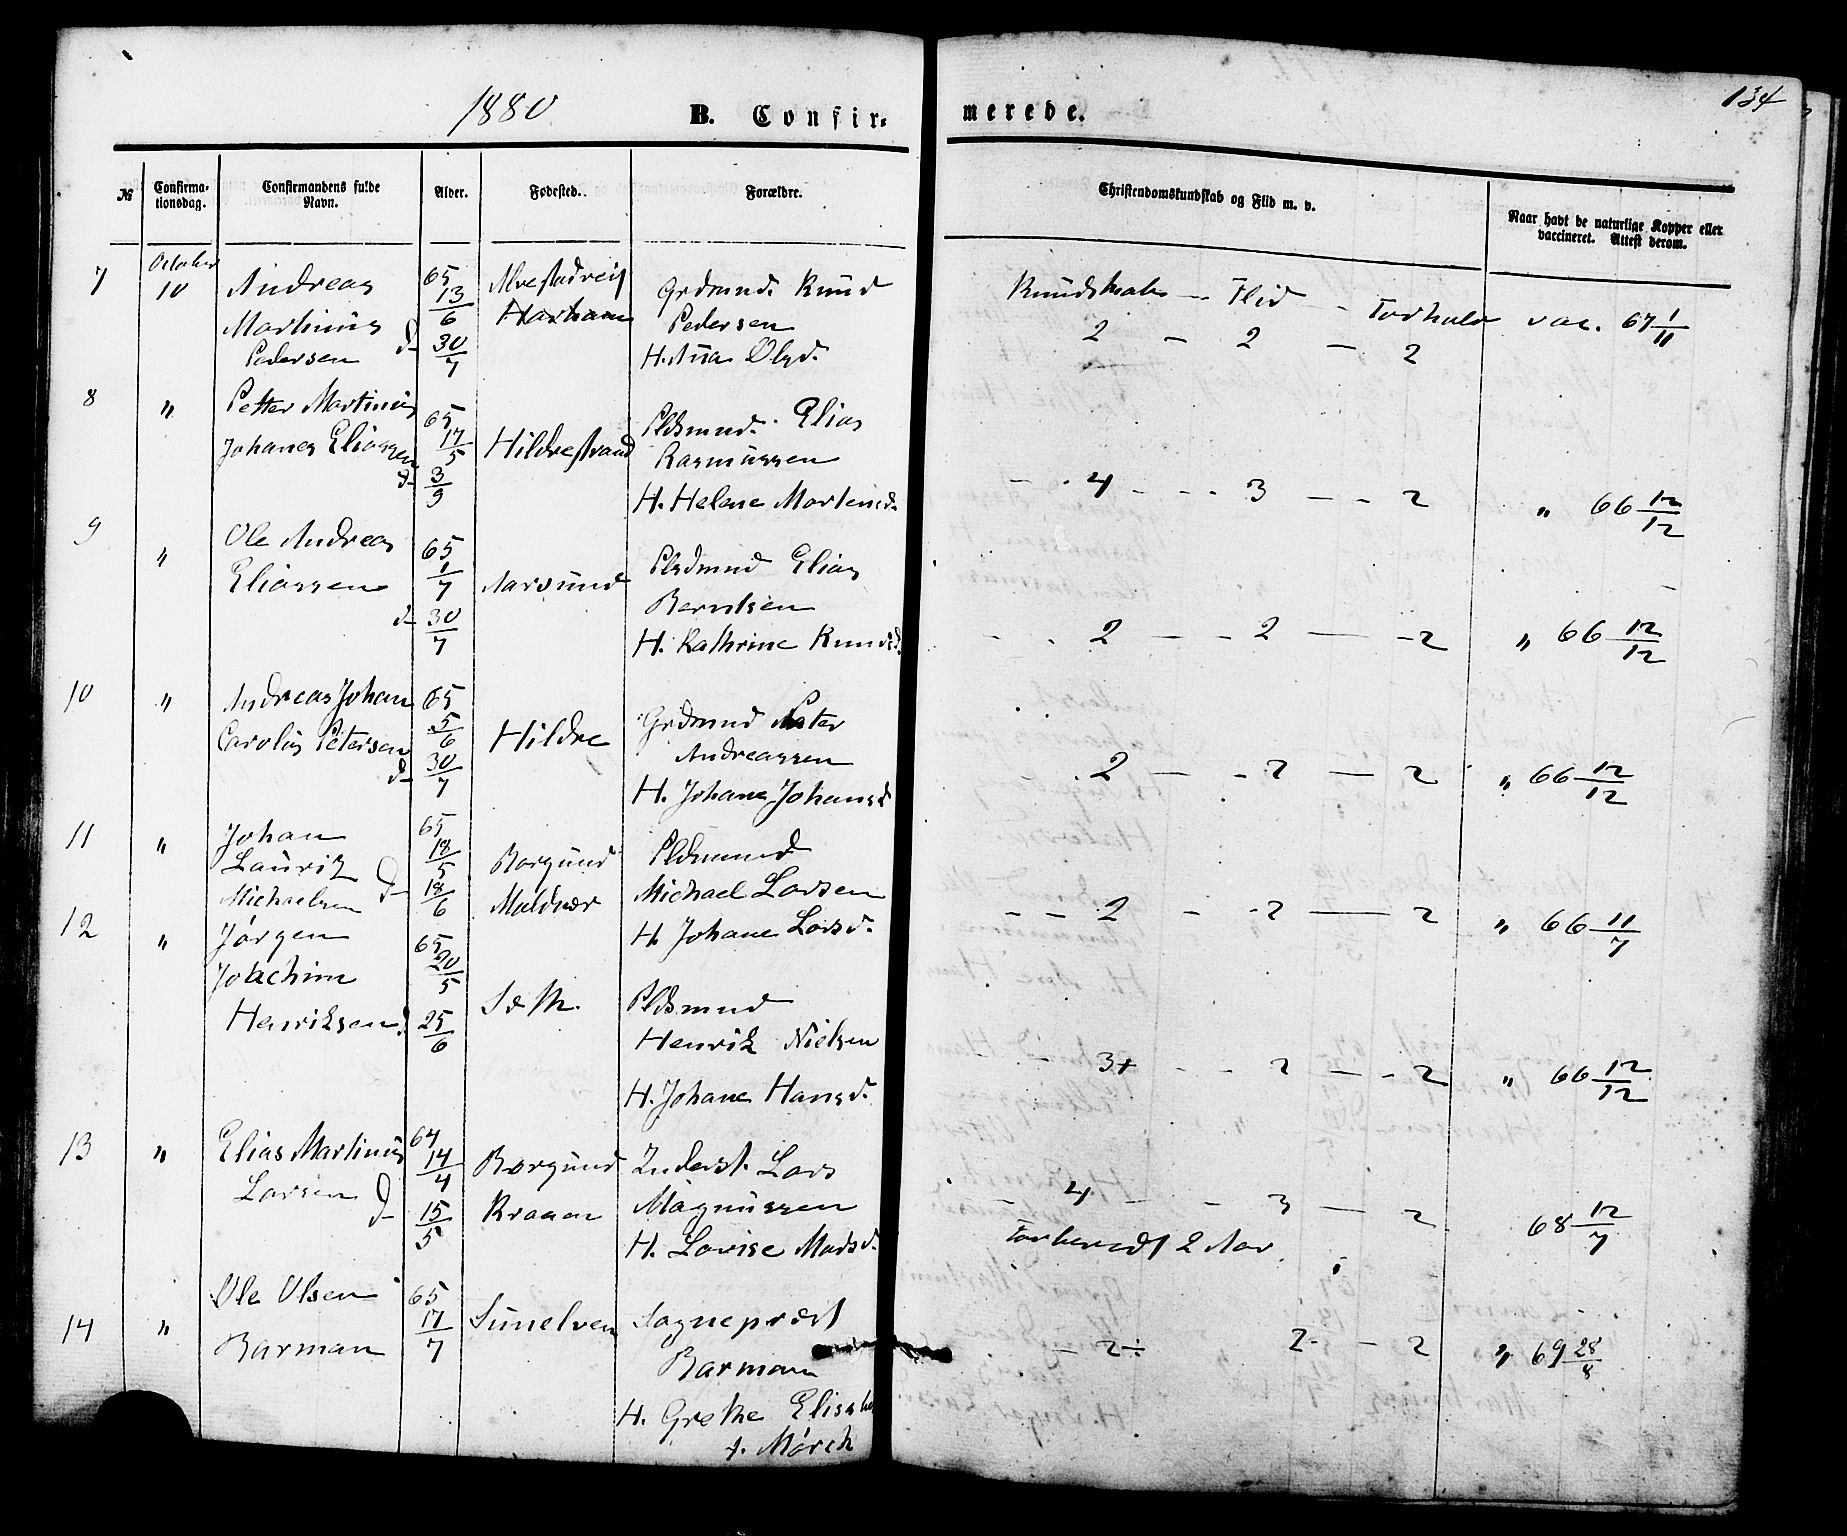 1880 B. Confir- merede. 134
№ Confirma-tionsdag. Confirmandens fulde Navn. Alder. Fødested. Forældre. Christendomskundskab og Flid m. v. Naar havt de naturlige Kopper eller vaccineret. Attest derom.
7 October 10 Andreas 65 13/6
Martinus Pedersen d 30/7
Harham
Grdmnd. Knud
Pedersen
H. Ana Olsd.
Kundskab - Flid - Forhold
2 - 2 - 2
vac. 67 1/11
8 " Petter Martinus 65 17/5
Johanes Eliassen d 3/9
Hildrestrand
Pldsmnd. Elias
Rasmussen
H. Helene Martinsd.
4 - 3 - 2 " 66 12/12
9 " Ole Andreas 65 1/7
Eliassen d 30/7
Aarsund
Plsdmnd Elias
Berntsen
H. Kathrine Knudsd.
2 - 2 - 2 " 66 12/12
10 " Andreas Johan 65 5/6
Carolus Petersen d 30/7
Hildre
Grdmnd Peter
Andreassen
H. Johane Johansd
2 - 2 - 2 " 66 12/12
11 " Johan 65 18/5
Laurik
Michaelsen d 18/6
Borgund
Pldsmnd
Michael Larsen
H. Johane Larsd.
2 - 2 - 2 " 66 11/7
12 " Jørgen 65 20/5
Joachim
Henriksen d 25/6
Pldsmnd
Henrik Nielsen
H. Johane Hansd.
3+ - 2 - 2 " 66 12/12
13 " Elias Martinus 64 14/4
Larsen d 15/5
Borgund
Inderst. Lars
Magnussen
H. Lovise Madsd.
4 - 3 - 2 68 12/7
Forberedt 2 Aar
14 " Ole Olsen 65 17/7
Barman
Sunelven
Sognepræst
Barman
H. Grethe Elisab
f. Mørch
2÷ 2 - 2 " 69 28/8